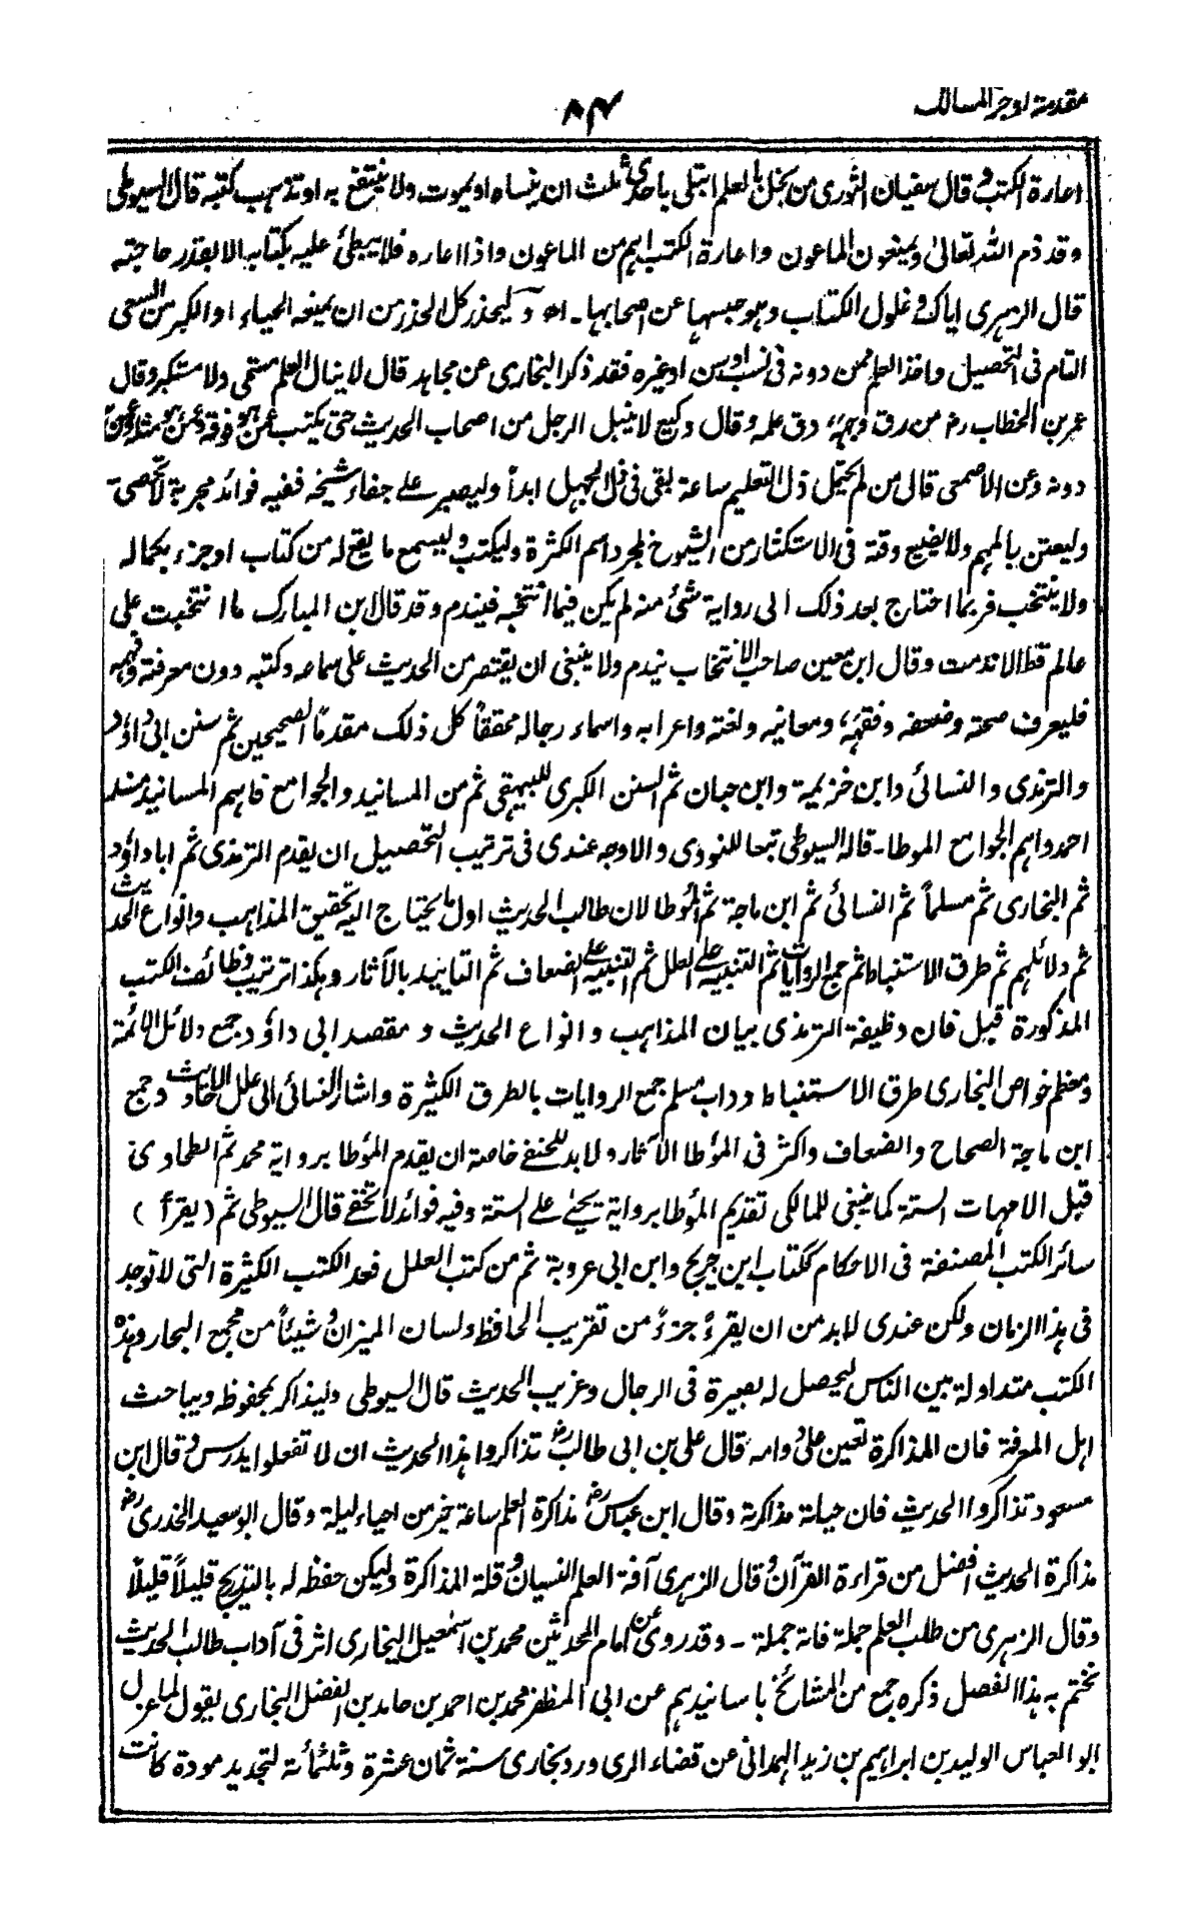 مقدمة اوجز المسالك
٨٤
اعارة الكتب وقال سفيان الثورى من بخل بالعلم ابتلى باحدى ثلث ان ينساه او يموت ولا ينتفع به او تذهب كتبه قال السيوطى
وقد ذم الله تعالىٰ ويمنعون الماعون واعارة الكتب اهم من الماعون واذا اعاره فلا يبطئ عليه بكتابه الا بقدر حاجته
قال الزهرى اياك وغلول الكتاب وهو حبسها عن اصحابها ـ اھ وليحذر كل الحذر من ان يمنعه الحياء او الكبر من السعى
التام فى التحصيل واخذ العلم ممن دونه فى نسب او سن او غيره فقد ذكر البخارى عن مجاهد قال لا ينال العلم مستحى ولا مستكبر وقال
عمر بن الخطاب رض من رق وجهه دق علمه وقال وكيع لا ينبل الرجل من اصحاب الحديث حتى يكتب عمن هو فوقه وعمن هو مثله وعمن
دونه وعن الاصمعى قال من لم يحتمل ذل التعليم ساعة بقى فى ذل الجهل ابداً وليصبر على جفاء شيخه ففيه فوائد مجربة لا تحصىٰ
وليعتن بالمهم ولا يضيع وقته فى الاستكثار من الشيوخ لمجرد اسم الكثرة وليكتب وليسمع ما يقع له من كتاب او جزء بكماله
ولا ينتخب فربما احتاج بعد ذلك الى رواية شئ منه لم يكن فيما انتخبه فيندم وقد قال ابن المبارك ما انتخبت على
عالم قط الا ندمت وقال ابن معين صاحب الانتخاب يندم ولا ينبغى ان يقتصر من الحديث على سماعه وكتبه دون معرفته وفهمه
فليعرف صحته وضعفه وفقهه ومعانيه ولغته واعرابه واسماء رجاله محققاً كل ذلك مقدماً الصحيحين ثم سنن ابى داؤد
والترمذى والنسائى وابن خزيمة وابن حبان ثم السنن الكبرى للبيهقى ثم من المسانيد والجوامع فاهم المسانيد مسند
احمد واهم الجوامع الموطا ـ قاله السيوطى تبعا للنووى والاوجه عندى فى ترتيب التحصيل ان يقدم الترمذى ثم اباداؤد
ثم البخارى ثم مسلماً ثم النسائى ثم ابن ماجة ثم المؤطا لان طالب الحديث اول ما يحتاج اليه تحقيق المذاهب وانواع الحديث
ثم دلائلهم ثم طرق الاستنباط ثم جمع الروايات ثم التنبيه على العلل ثم التنبيه على الضعاف ثم التاييد بالآثار وهكذا ترتيب وظائف الكتب
المذكورة قبل فان وظيفة الترمذى بيان المذاهب وانواع الحديث ومقصد ابى داؤد جمع دلائل الائمة
ومعظم خواص البخارى طرق الاستنباط وداب مسلم جمع الروايات بالطرق الكثيرة واشار النسائى الى علل الاحاديث وجمع
ابن ماجة الصحاح والضعاف واكثر فى المؤطا الآثار ولا بد للحنفے خاصة ان يقدم المؤطا برواية محمد ثم الطحاوى
قبل الامهات الستة كما ينبغى للمالكى تقديم المؤطا برواية يحيےٰ علے الستة وفيه فوائد لا تخفے قال السيوطى ثم (يقرأ)
سائر الكتب المصنفة فى الاحكام ككتاب ابن جريج وابن ابى عروبة ثم من كتب العلل فعد الكتب الكثيرة التى لا توجد
فى هذا الزمان ولكن عندى لا بد من ان يقرءَ جزءً من تقريب الحافظ ولسان الميزان وشيئاً من مجمع البحار وهذه
الكتب متداولة بين الناس ليحصل له بصيرة فى الرجال وغريب الحديث قال السيوطى وليذاكر بمحفوظه ويباحث
اهل المعرفة فان المذاكرة تعين على دوامه قال على بن ابى طالب رض تذاكروا هذا الحديث ان لا تفعلوا يدرس وقال ابن
مسعود تذاكروا الحديث فان حياته مذاكرته وقال ابن عباس رض مذاكرة العلم ساعة خير من احياء ليلة وقال ابو سعيد الخدرى رض
مذاكرة الحديث افضل من قراءة القرآن وقال الزهرى آفة العلم النسيان وقلة المذاكرة وليكن حفظه له بالتدريج قليلاً قليلاً
وقال الزهرى من طلب العلم جملة فاته جملة ـ وقد روى عن امام المحدثين محمد بن اسمٰعيل البخارى اثر فى آداب طالب الحديث
نختم به هذا الفصل ذكره جمع من المشائخ باسانيدهم عن ابى المظفر محمد بن احمد بن حامد بن الفضل البخارى يقول لما عزل
ابو العباس الوليد بن ابراهيم بن زيد الهمدانى عن قضاء الرى ورد بخارى سنة ثمان عشرة وثلثمائة لتجديد مودة كانت